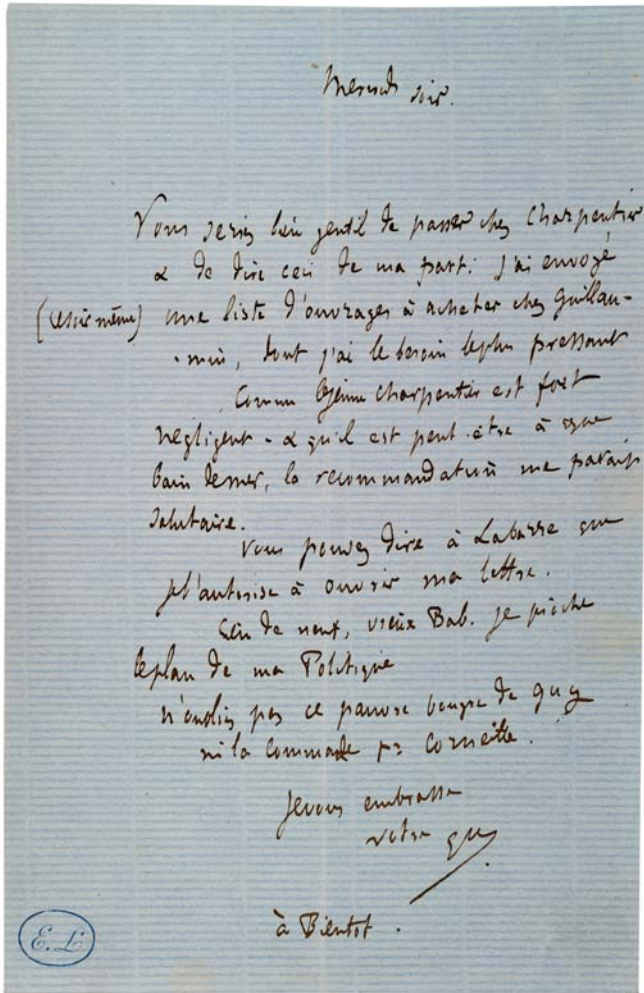 Mercredi soir.
Vous seriez bien gentil de passer chez Charpentier
& de dire ceci de ma part: j'ai envoyé
(ce soir même) une liste d'ouvrages à acheter chez Guillau-
-min, dont j'ai le besoin le plus pressant
Comme le jeune Charpentier est fort
négligent - & qu'il est peut-être à
bain de mer, la recommandation me paraît
salutaire.
Vous pouvez dire à Labarre que
je l'autorise à ouvrir ma lettre.
Rien de neuf, vieux Bab. je pioche
le plan de ma Politique
n'oubliez pas ce pauvre bougre de Guy
ni la commande pr Corneille.
Je vous embrasse
votre
à Bientot.
E. L.